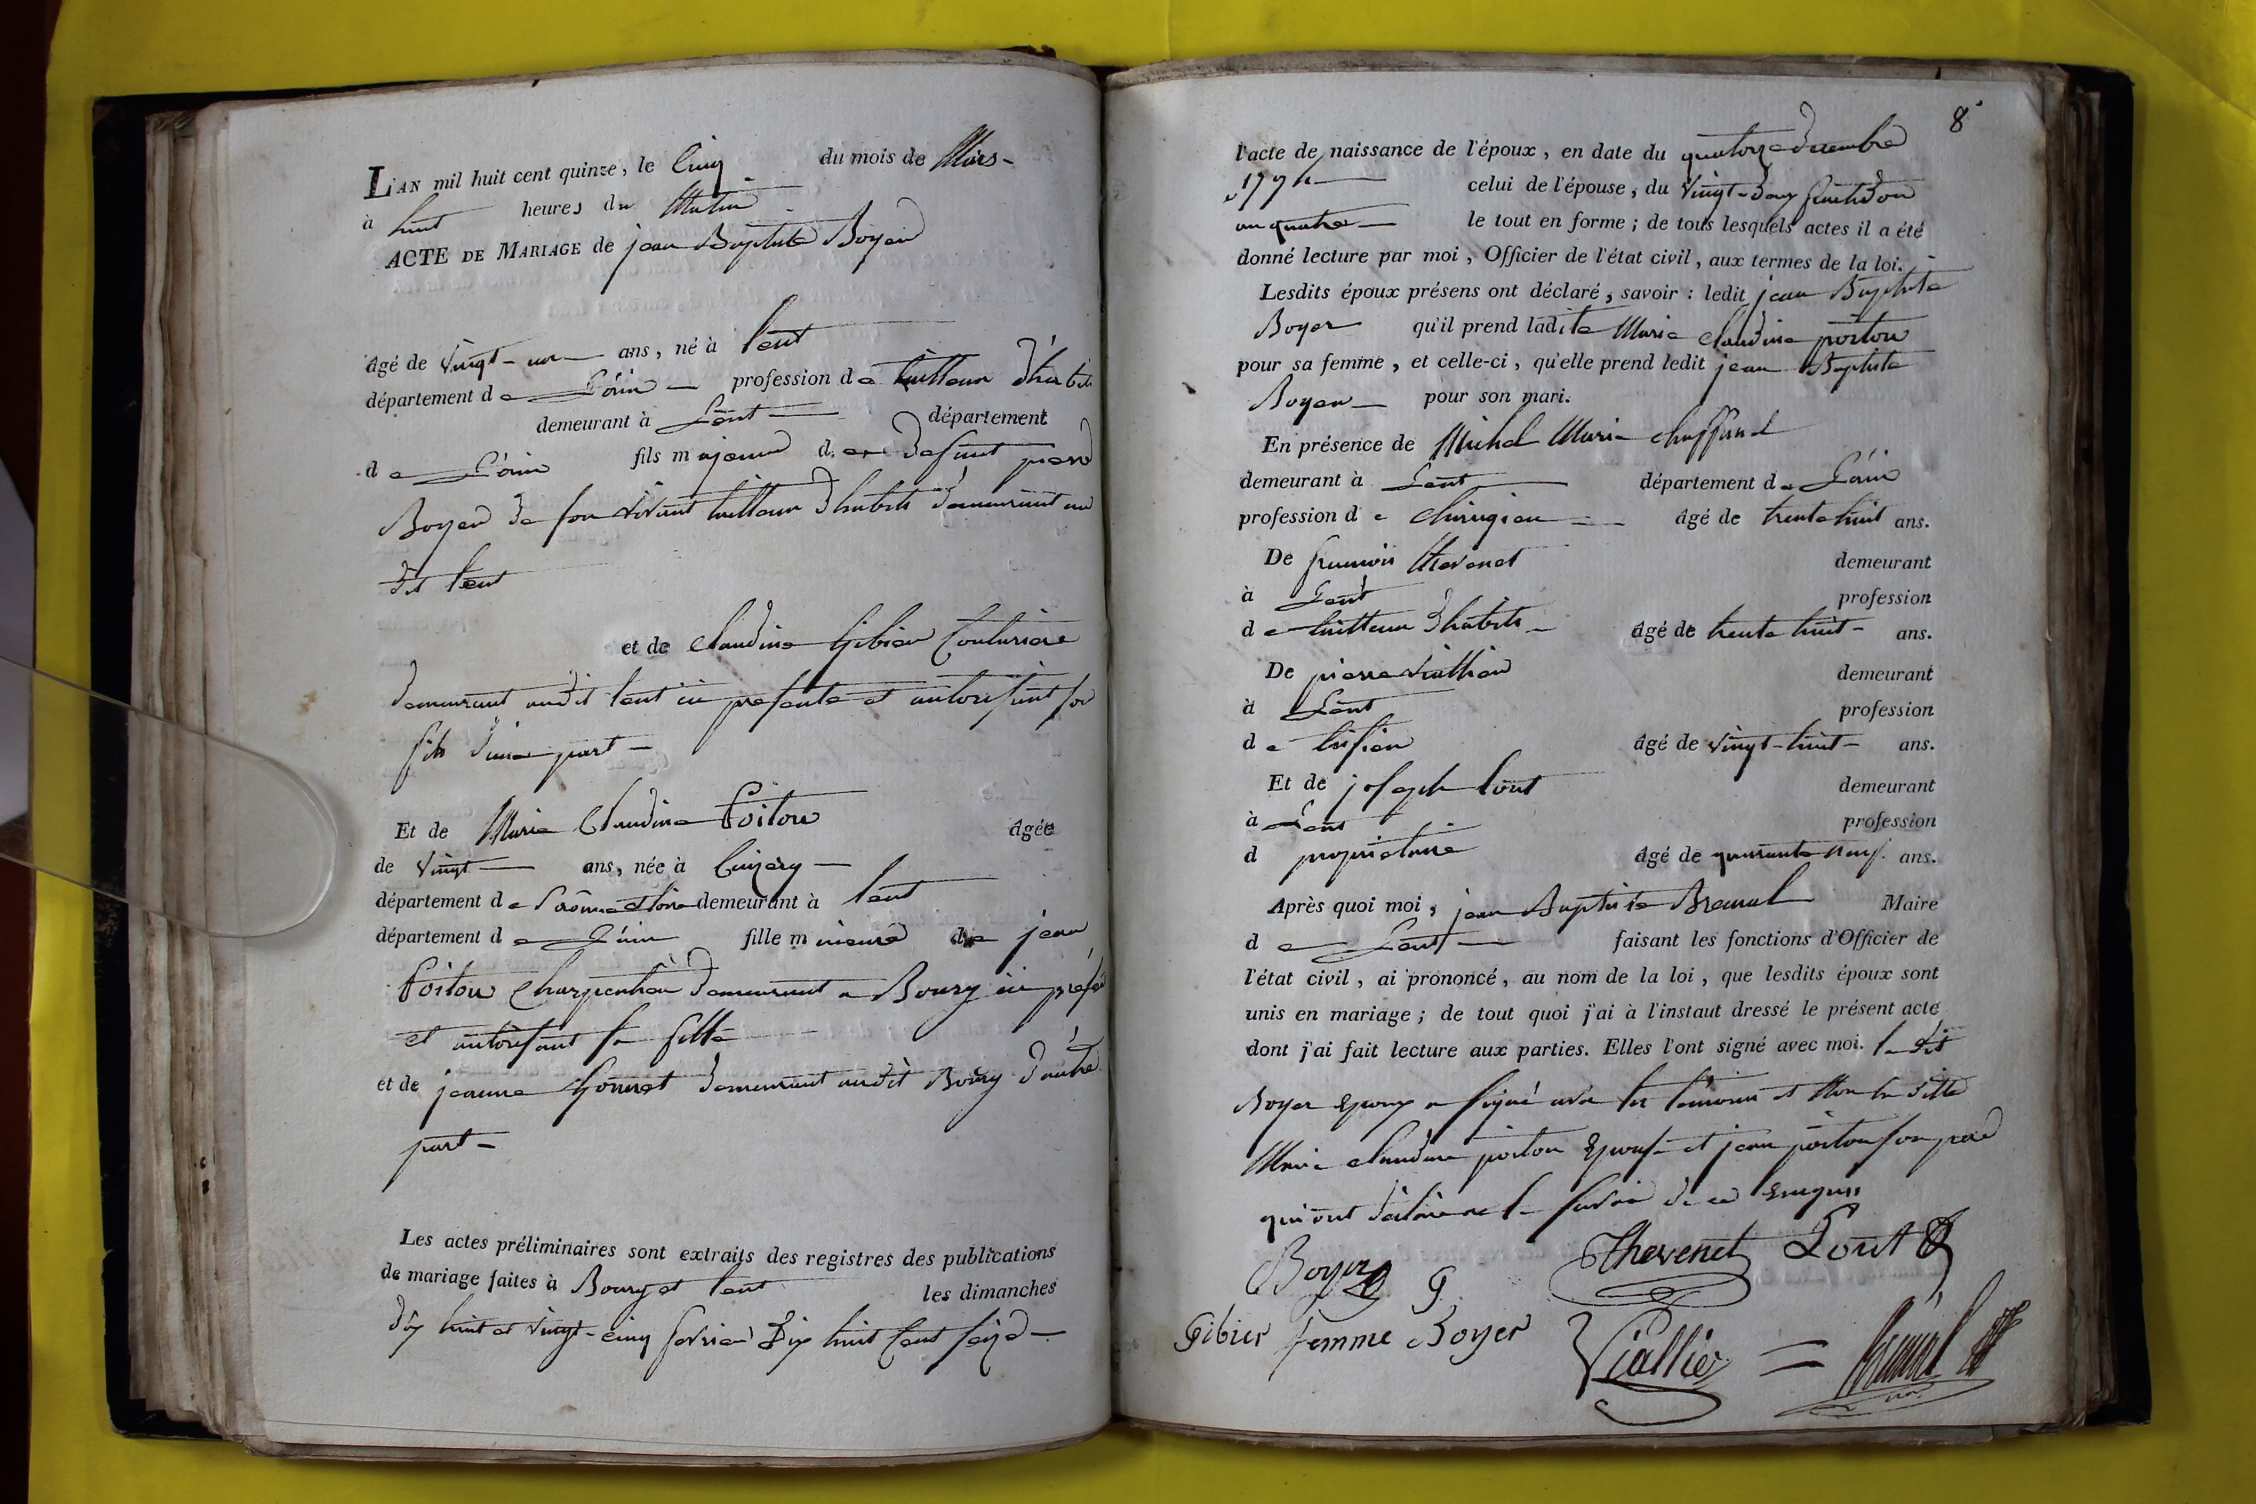 L'AN mil huit cent quinze, le Cinq du mois de Mars
à huit heures du Matin
ACTE DE MARIAGE de jean Baptiste Boyer
âgé de vingt-un ans, né à lent
département de L'ain profession de tailleur d'habits
demeurant à Lent département
de L'ain fils majeur de defunt pierre
Boyer de son vivant tailleur d'habits demeurant au
dit lent
et de Claudine Gibier Couturiere
demeurant audit lent ici presente et autorisant son
fils d'une part
Et de Marie Claudine Poitou âgée
de vingt ans, née à Cuizery
département de Saône et loire demeurant à lent
département de L'ain fille mineure de jean
Poitou Charpentier demeurant a Bourg ici présent
et autorisant sa fille
et de jeanne Gonnet demeurant audit Bourg d'autre
part
Les actes préliminaires sont extraits des registres des publications
de mariage faites à Bourg et lent les dimanches
dix huit et vingt-cinq fevrier dix huit Cent seize
8
l'acte de naissance de l'époux, en date du quatorze decembre
celui de l'épouse, du vingt-deux fructidor
an quatre le tout en forme; de tous lesquels actes il a été
donné lecture par moi, Officier de l'état civil, aux termes de la loi.
Lesdits époux présens ont déclaré, savoir: ledit jean Baptiste
Boyer qu'il prend ladite Marie Claudine poitou
pour sa femme, et celle-ci, qu'elle prend ledit jean Baptiste
Boyer pour son mari.
En présence de Michel Marie chaffard
demeurant à Lent département de L'ain
profession de chirurgien âgé de trente huit ans.
De françois thevenet demeurant
à Lent profession
de tailleur d'habits âgé de trente huit ans.
De pierre viallier demeurant
à Lent profession
de âgé de vingt-huit ans.
Et de joseph lout demeurant
à Lent profession
d propriétaire âgé de quarante neuf ans.
Après quoi moi, jean Baptiste Maire
de Lent faisant les fonctions d'Officier de
l'état civil, ai prononcé, au nom de la loi, que lesdits époux sont
unis en mariage; de tout quoi j'ai à l'instaut dressé le présent acte
dont j'ai fait lecture aux parties. Elles l'ont signé avec moi. le dit
Boyer Epoux a signé avec les témoins et Non la ditte
Marie Claudine poitou Epouse et jean poitou son pere
qui ont déclaré ne le savoir de ce enquis
Boyer Thevenet Lout
G
Gibier femme Boyer Viallier